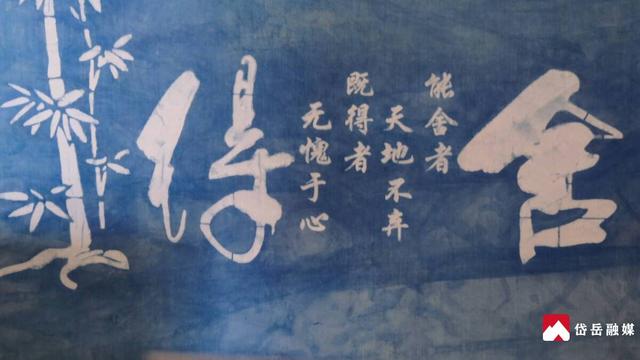 舍
能舍者
天地不弃
既得者
无愧于心
得
岱岳融媒